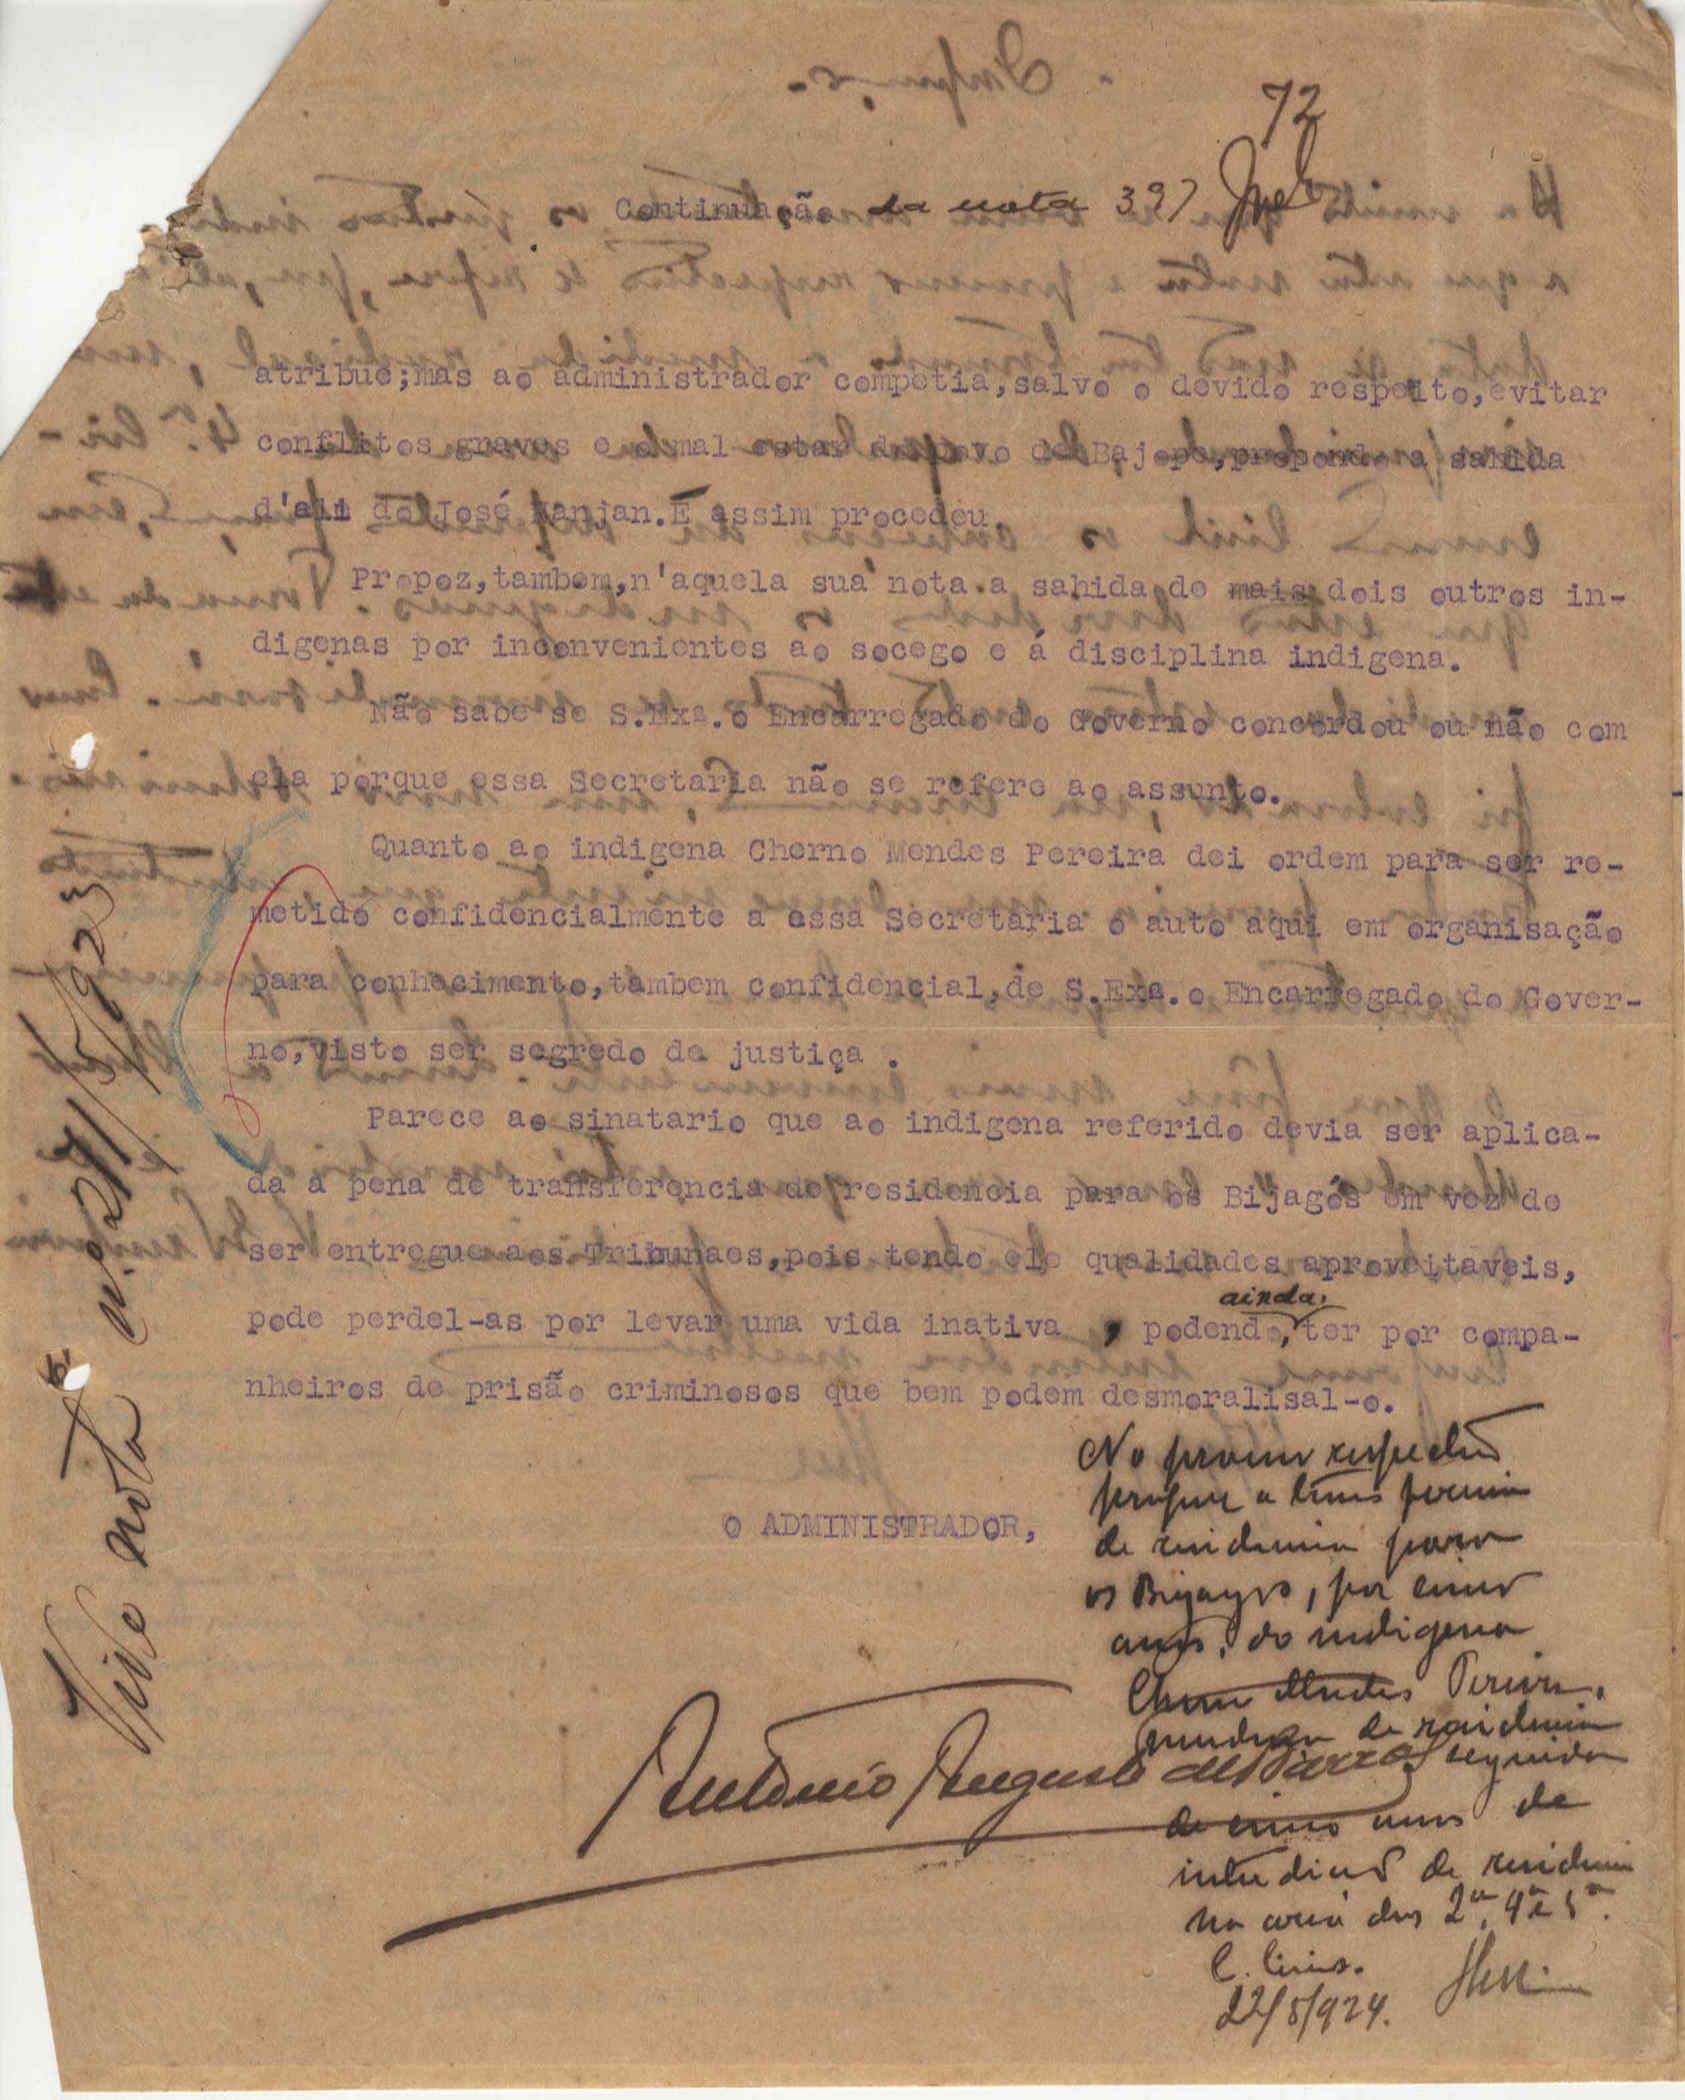 72
Continuação da nota 397
atribue;mas ao administrador competia,salvo o devido respeito,evitar
conflitos graves e o mal estar do povo de Bajope,propondo a sahida
d'ali de José Sanjan.E assim procedeu.
Propoz,tambem,n'aquela sua nota a sahida de mais dois outros in-
digenas por inconvenientes ao socego e á disciplina indigena.
Não sabe se S.Exa.o Encarregado do Governo concordou ou não com
ela porque essa Secretaria não se refere ao assunto.
Quanto ao indigena Cherno Mendes Pereira dei ordem para ser re-
metido confidencialmente a essa Secretaria o auto aqui em organisação
para conhecimento,tambem confidencial,de S.Exa.o Encarregado do Gover-
no,visto ser segredo de justiça .
Parece ao sinatario que ao indigena referido devia ser aplica-
da a pena de transferencia de residencia para os Bijagós em vez de
ser entregue aos Tribunaes,pois tendo ele qualidades aproveitaveis,
pode perdel-as por levar uma vida inativa , podendo, ainda, ter por compa-
nheiros de prisão criminosos que bem podem desmoralisal-o.
O ADMINISTRADOR,
Antonio Augusto de Barros
No respectivo
propuz a
de residencia para
os Bijagós, por cinco
anos, do indigena
Cherno Mendes Pereira,
mudança de residencia
seguida
de cinco anos de
interdicão de residencia
na area das 2ª, 4ª e 5ª.
C. Civis.
22/5/924.
Vide nota nº 271/5/923